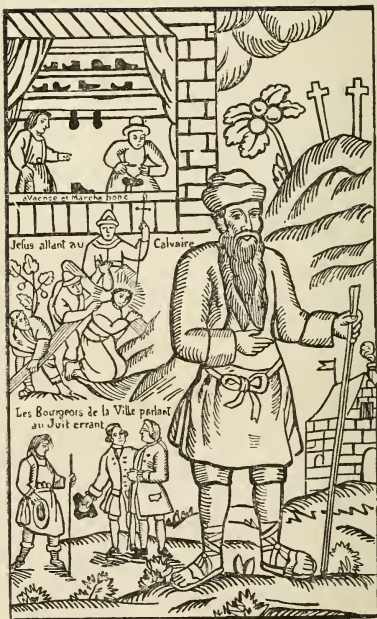 aVacnce et Marche donc
Jesus allant au Calvaire
Les Bourgeois de la Ville parlant
au Juit errant